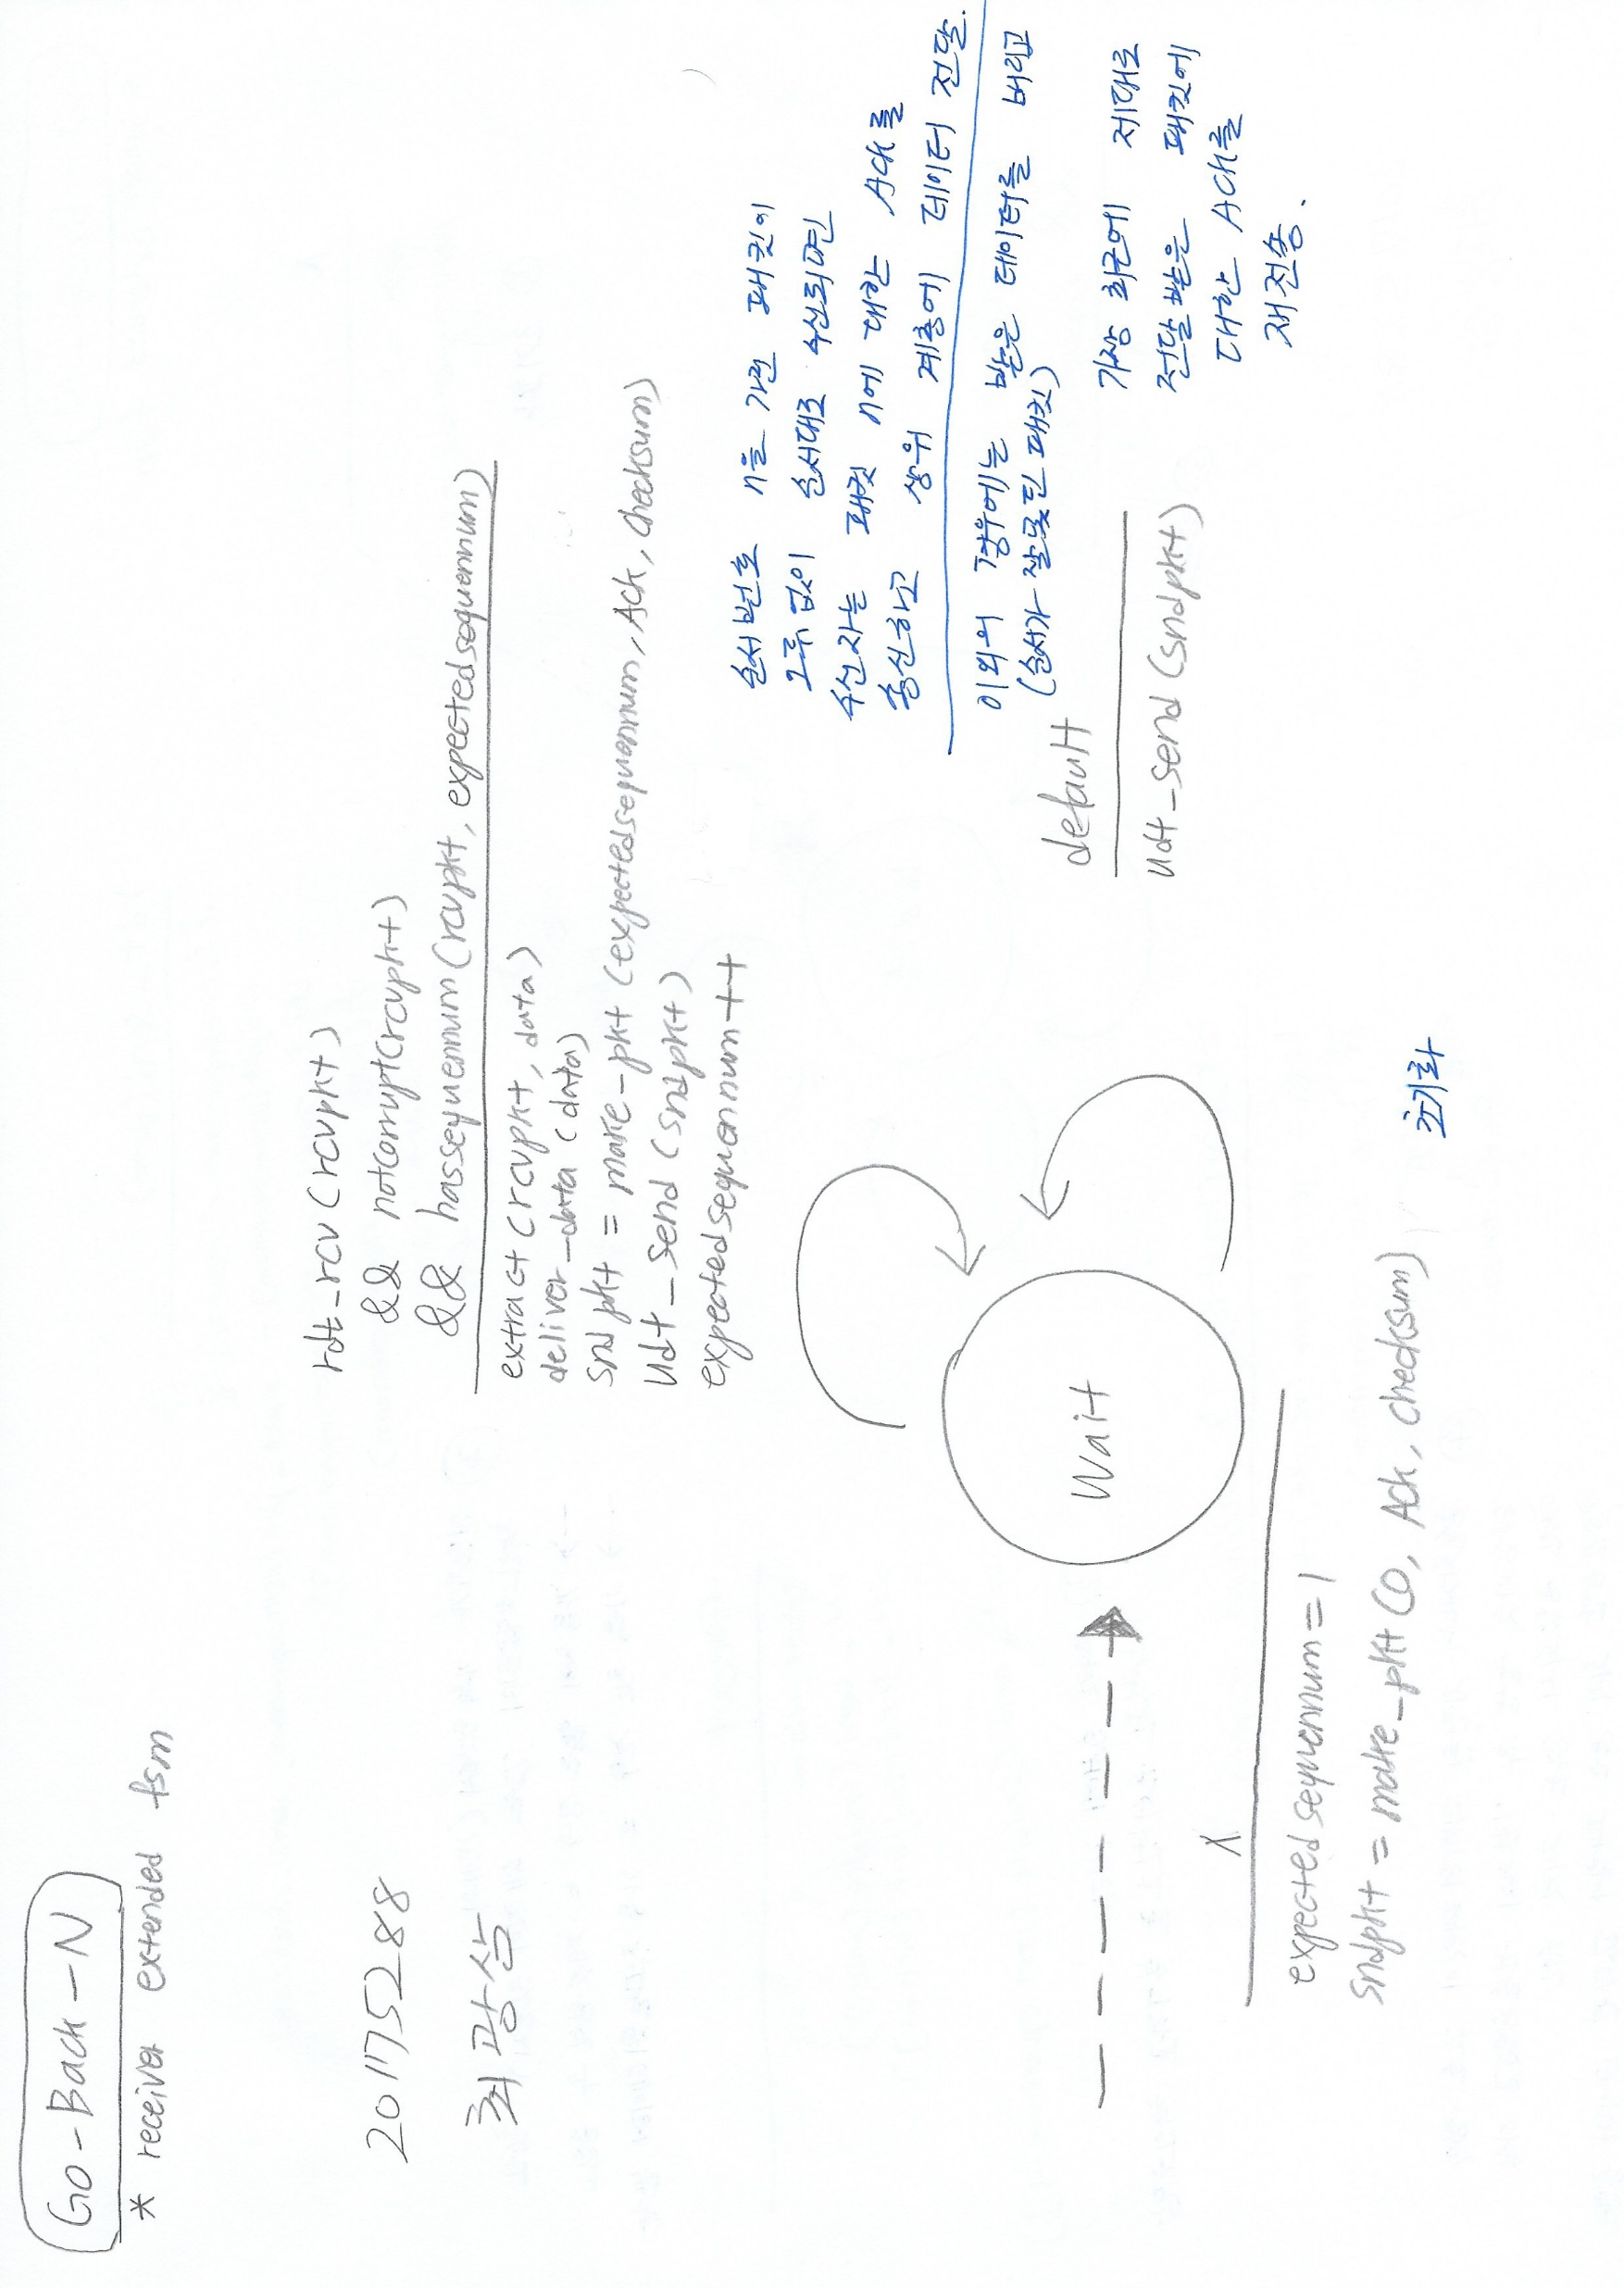 Go-Back-N
* receiver extended fsm
20175288
최광삼
rdt_rcv(rcvpkt)
&& notcorrupt(rcvpkt)
&& hassequennum(rcvpkt, expectedsequennum)
extract(rcvpkt, data)
deliver_data(data)
sndpkt = make_pkt(expectedsequennum, Ack, checksum)
udt_send(sndpkt)
expectedsequennum++
순서번호 n을 가진 패킷이
오류 없이 순서대로 수신되면
수신자는 패킷 n에 대한 Ack를
송신하고 상위 계층에 데이터 전달.
이외의 경우에는 받은 데이터를 버리고
(순서가 잘못된 패킷)
가장 최근에 제대로
전달받은 패킷에
대한 Ack를
재전송.
default
udt_send(sndpkt)
Wait
Λ
expectedsequennum=1
sndpkt = make_pkt(0, Ack, checksum)
초기화